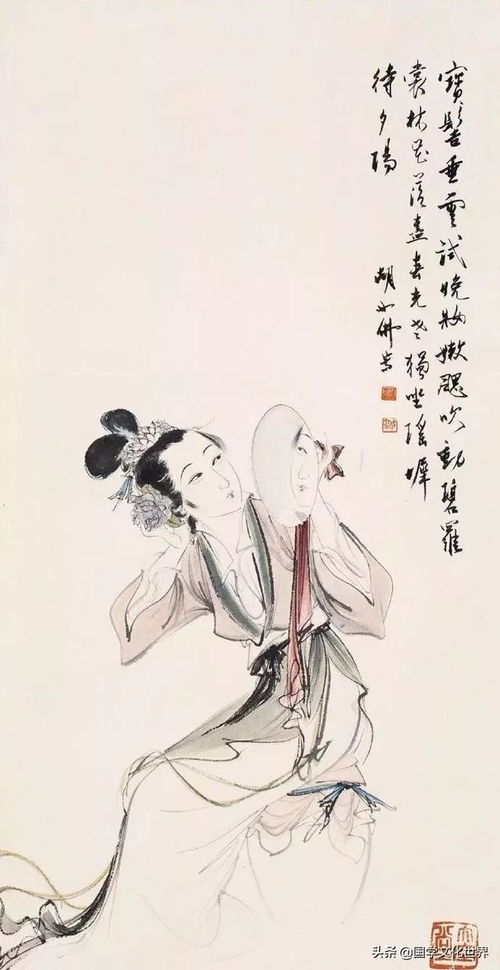 寶髻垂雲試晚妝嫩颸吹動碧羅
裳林花落盡春光老獨坐瑤墀
待夕陽
胡也佛寫
头条 @国学文化世界